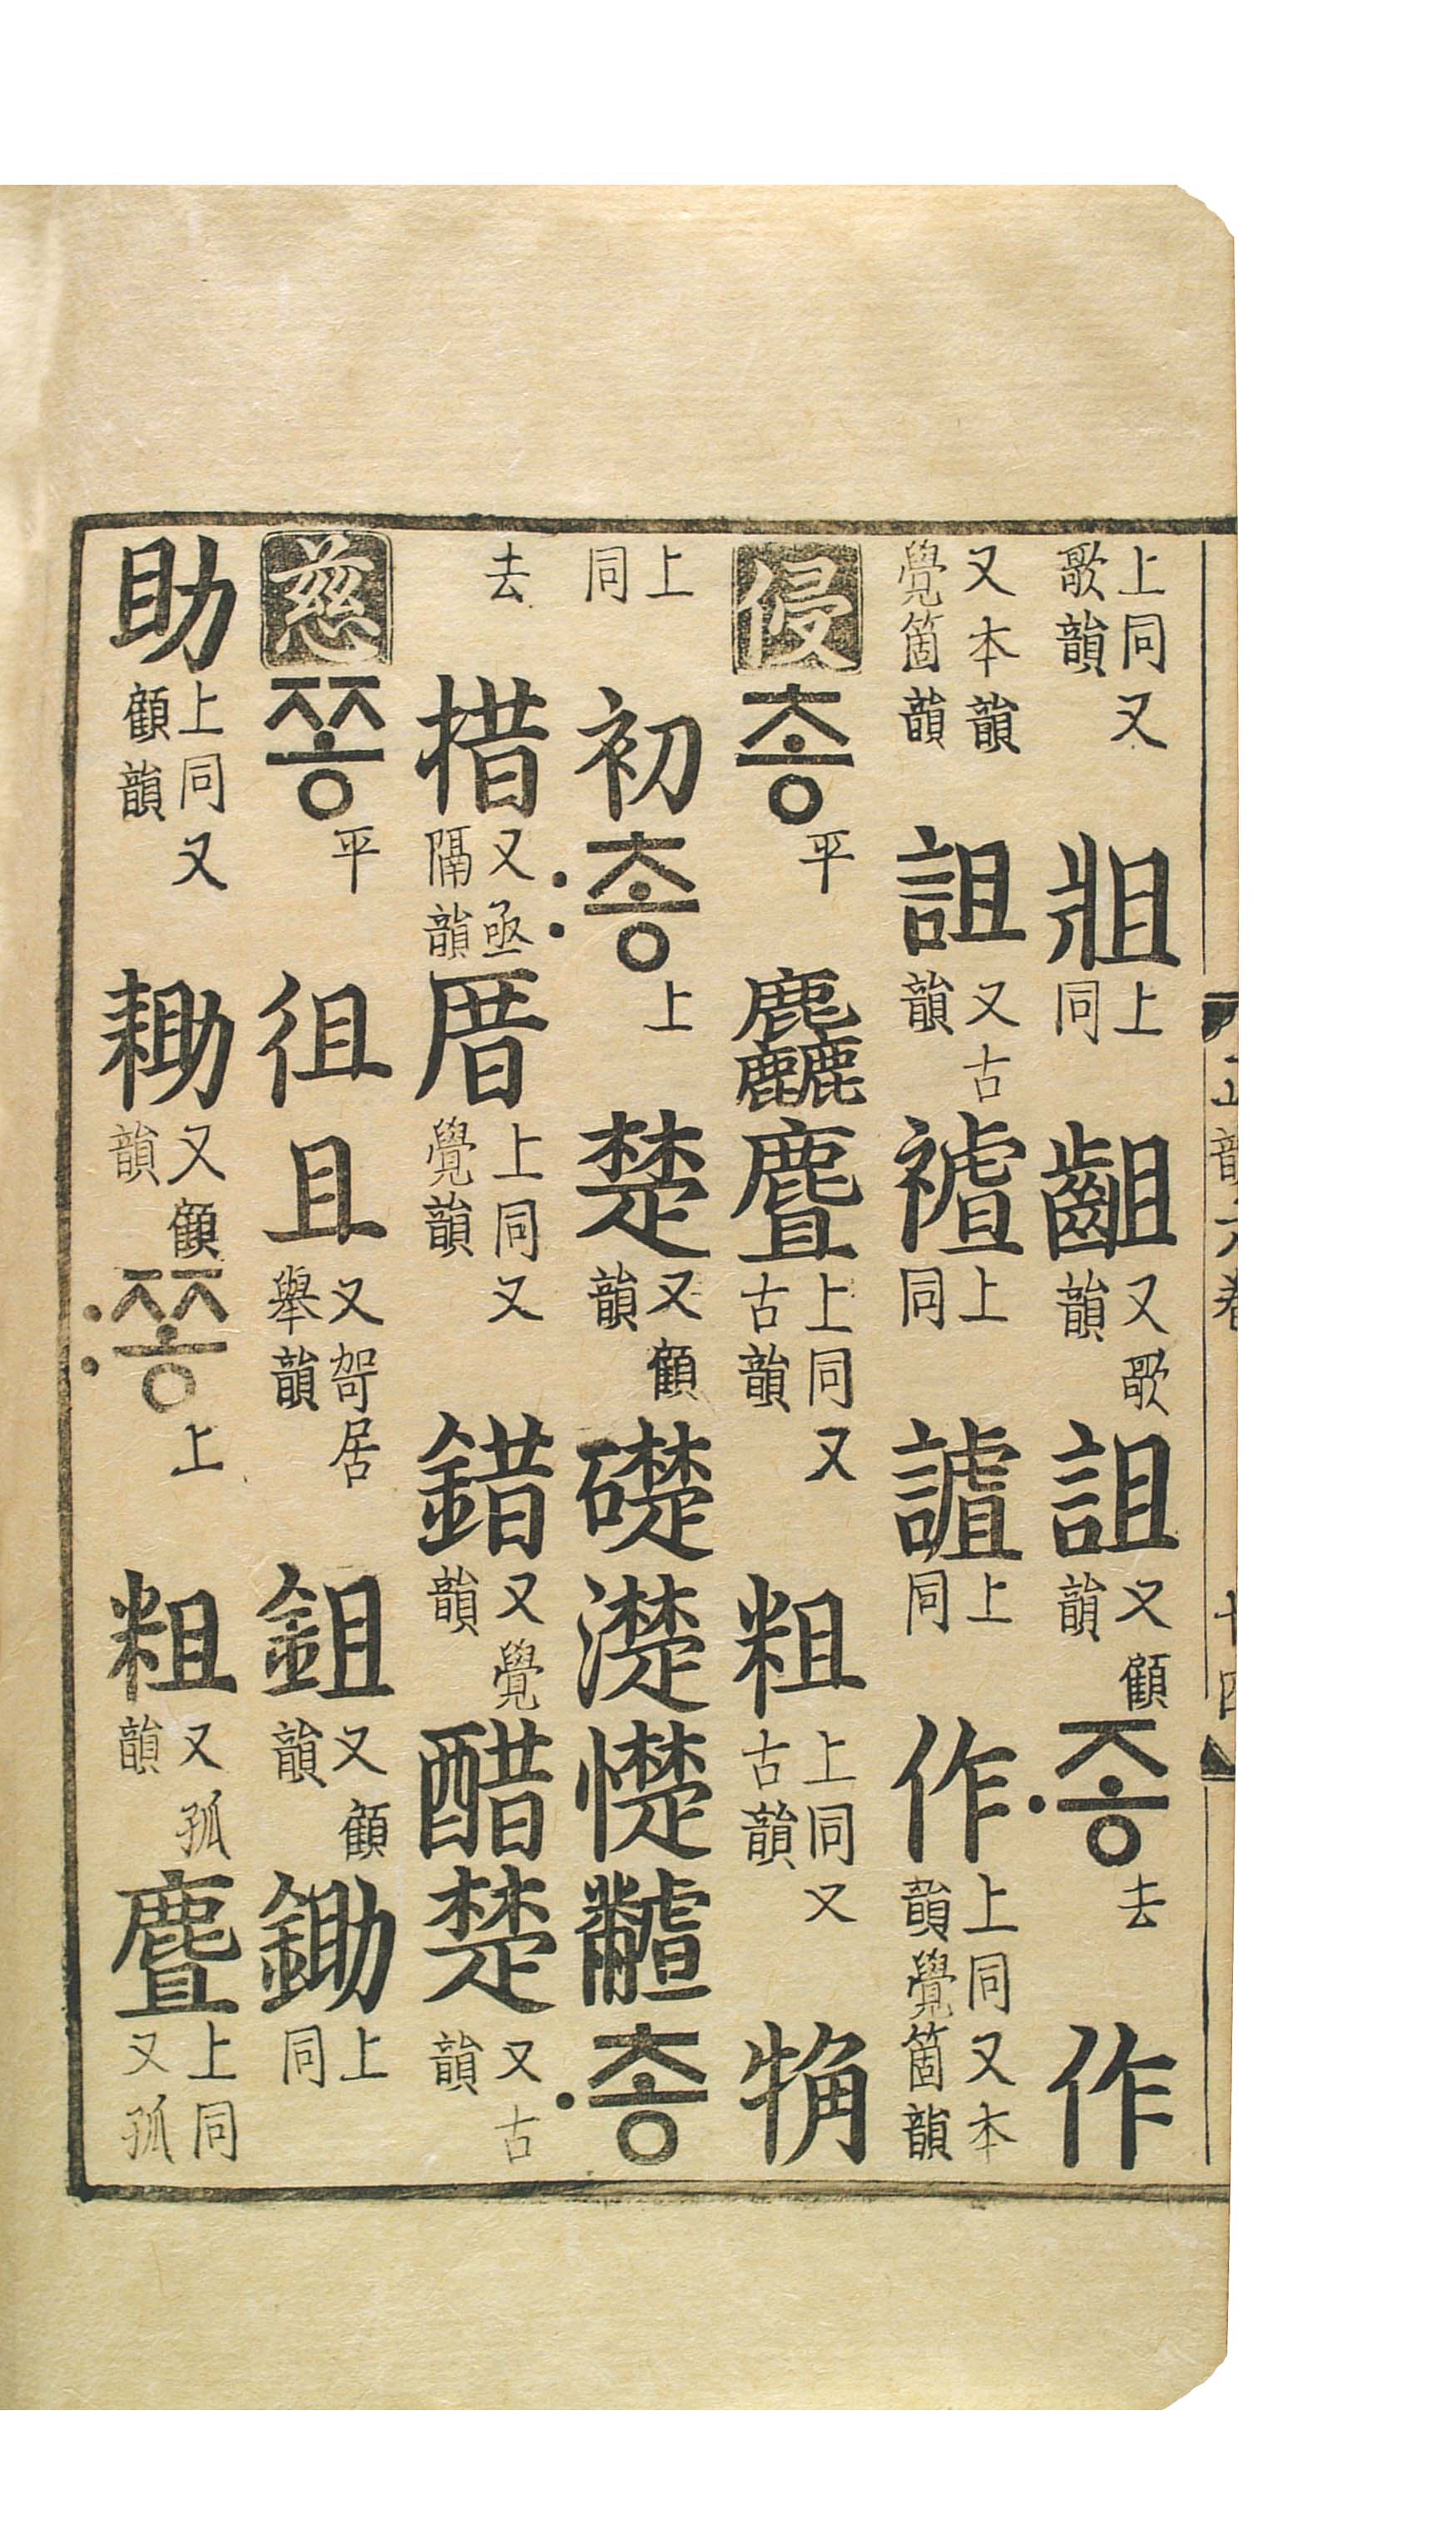 上同又歌韻 上同 齟 又歌韻 詛 又顧韻 ·종 去 作
又本韻覺箇韻 詛 又古韻 上同 謯 上同 作 上同又本韻覺箇韻
侵 총 平 麤 麆 上同又古韻 粗 上同又古韻 觕
上同 初 :총 上 楚 又顧韻 礎 濋 憷 𪓐 ·총
去 措 又亟隔韻 厝 上同又覺韻 錯 又覺韻 醋 楚 又古韻
慈 쫑 平 徂 且 又哿居舉韻 鉏 又顧韻 鋤 上同
助 上同又顧韻 耡 又顧韻 :쫑 上 粗 又孤韻 麆 上同又孤